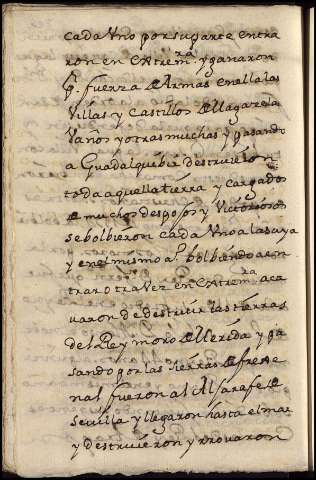 cada Vno por su parte entra
ron en Extrem.ra y ganaron
fuerza de Armas en ella las
Villas y Castillos de llagarela
Vaños y otras muchas y pasando
a Guadalquibir destruieron
toda aquella tierra y cargados
de muchos despojos y Victoriosos
se bolbieron cada Vno a la suya
y en el mismo a.o bolbiendo a en
trar otra Vez en Extrem.ra aca
varon de destruir las tierras
del Rey moro de Mereda y pa
sando por las tierras de frexe
nal fueron al Alxarafe de
sevilla y llegaron hasta el mar
y destruieron y rrovaron